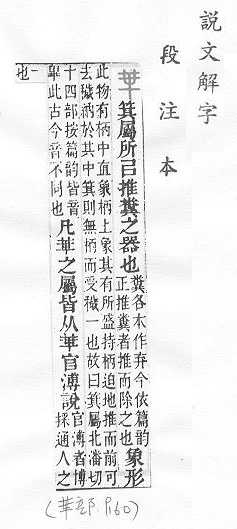 說文解字
段注本
𠦒 箕屬所㠯推糞之器也糞各本作弃今依篇韵正推糞者推而除之也象形
此物有柄中直象柄上象其有所盛持柄迫地推而前可
去穢納於其中箕則無柄而受穢一也故曰箕屬北潘切
十四部按篇韵皆音畢此古今音不同也凡𠦒之屬皆从𠦒官溥說官溥者博採通人之
一也
(𠦒部 P.160)